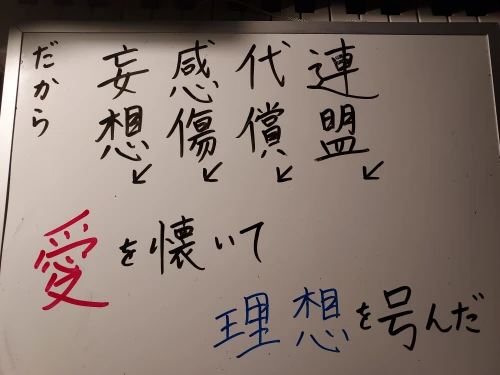 だから
妄想
感傷
代償
連盟
↙ ↙ ↙ ↙
愛を懐いて
理想を号んだ